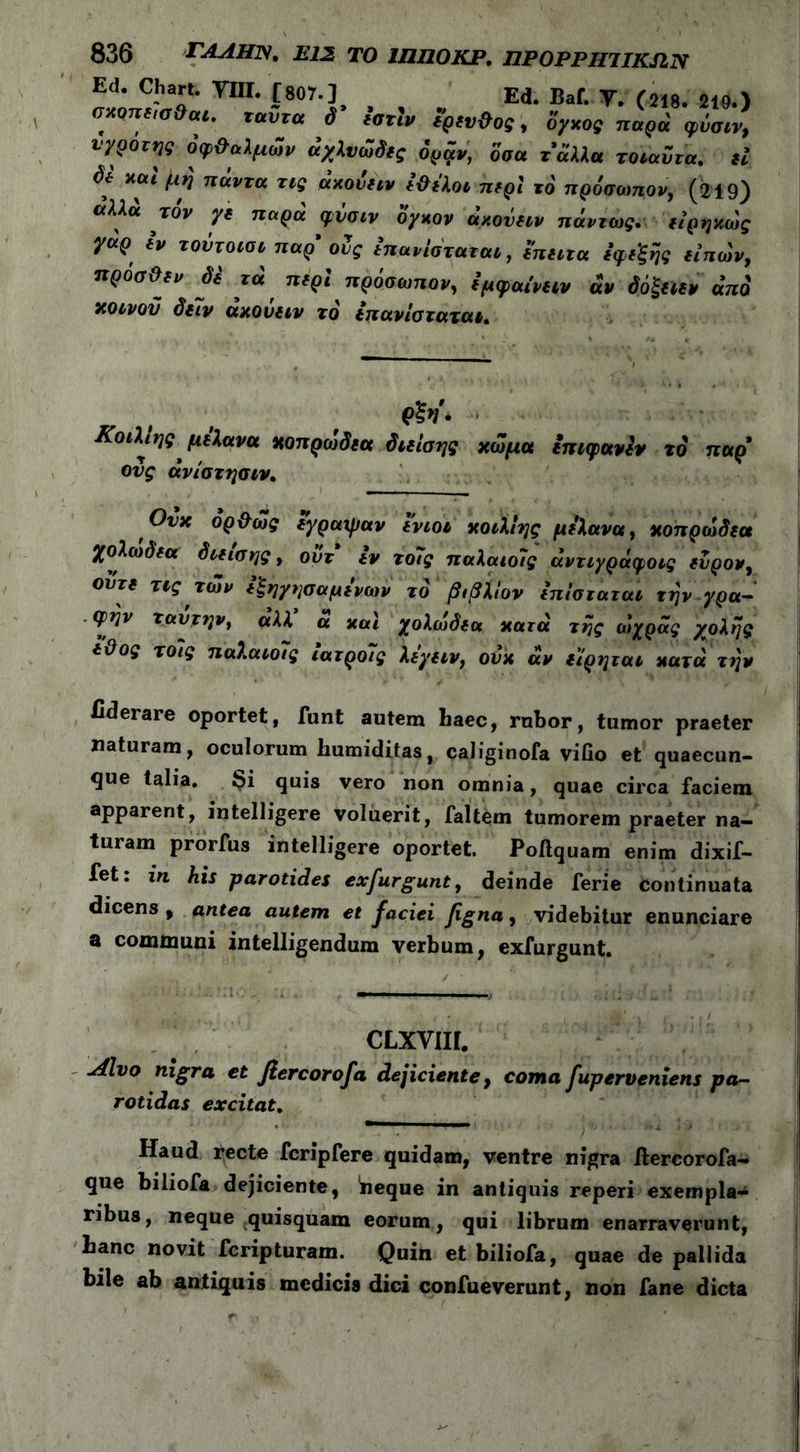 836 ΓΑΛΗΝ. ΕΙΣ ΤΟ ΙΠΠΟΚΡ. ΠΡΟΡΡΗΤΙΚΩΝ
Ed. Chart. VIII. [807.] Ed. Baf. V. (218. 219.)
σκοπεῖσθαι. ταῦτα δ᾽ ἐστὶν ἔρευθος, ὄγκος παρὰ φύσιν,
ὑγρότης ὀφθαλμῶν ἀχλυῶδες ὁρᾷν, ὅσα τ᾽ἄλλα τοιαῦτα. εἰ
δὲ καὶ μὴ πάντα τις ἀκούειν ἐθέλοι περὶ τὸ πρόσωπον, (219)
ἀλλὰ τόν γε παρὰ φύσιν ὄγκον ἀκούειν πάντως. εἰρηκὼς
γὰρ ἐν τούτοισι παρ᾽ οὖς ἐπανίσταται, ἔπειτα ἐφεξῆς εἰπὼν,
πρόσθεν δὲ τὰ περὶ πρόσωπον, ἐμφαίνειν ἂν δόξειεν ἀπὸ
κοινοῦ δεῖν ἀκούειν τὸ ἐπανίσταται.
ρξη΄.
Κοιλίης μέλανα κοπρώδεα διείσης κῶμα ἐπιφανὲν τὸ παρ᾽
οὖς ἀνίστησιν.
Οὐκ ὀρθῶς ἔγραψαν ἔνιοι κοιλίης μέλανα, κοπρώδεα
χολώδεα διείσης, οὔτ᾽ ἐν τοῖς παλαιοῖς ἀντιγράφοις εὗρον,
οὔτε τις τῶν ἐξηγησαμένων τὸ βιβλίον ἐπίσταται τὴν γρα-
φὴν ταύτην, ἀλλ᾽ ἃ καὶ χολώδεα κατὰ τῆς ὠχρᾶς χολῆς
ἔθος τοῖς παλαιοῖς ἰατροῖς λέγειν, οὐκ ἂν εἴρηται κατὰ τὴν
fiderare oportet, funt autem haec, rubor, tumor praeter
naturam, oculorum humiditas, caliginofa vifio et quaecun-
que talia. Si quis vero non omnia, quae circa faciem
apparent, intelligere voluerit, faltem tumorem praeter na-
turam prorfus intelligere oportet. Poftquam enim dixif-
fet: in his parotides exfurgunt, deinde ferie continuata
dicens, antea autem et faciei figna, videbitur enunciare
a communi intelligendum verbum, exfurgunt.
CLXVIII.
Alvo nigra et ftercorofa dejiciente, coma fuperveniens pa-
rotidas excitat.
Haud recte fcripfere quidam, ventre nigra ftercorofa-
que biliofa dejiciente, neque in antiquis reperi exempla-
ribus, neque quisquam eorum, qui librum enarraverunt,
hanc novit fcripturam. Quin et biliofa, quae de pallida
bile ab antiquis medicis dici confueverunt, non fane dicta